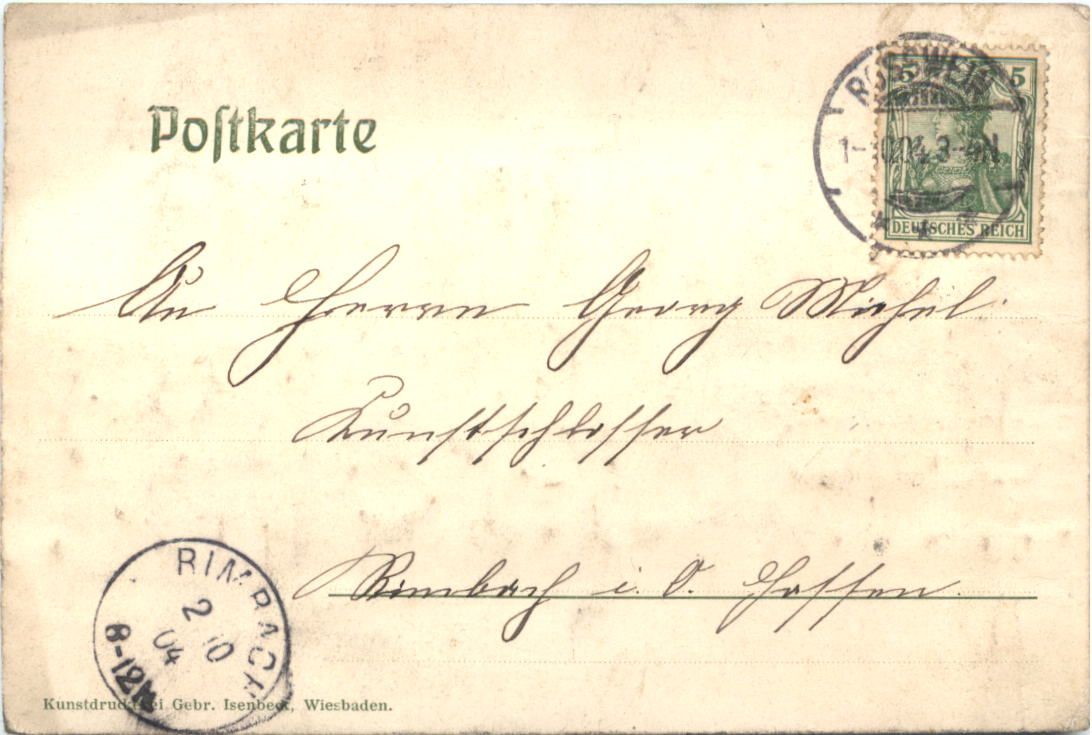 Postkarte
5 5
ROSSWEIN
1-10 04 3-4N
DEUTSCHES REICH
An Herrn Georg Michel.
Kunstschlosser
Rimbach i. O. Hessen.
RIMBACH
2 10
04
8-12N
Kunstdruckerei Gebr. Isenbeck, Wiesbaden.